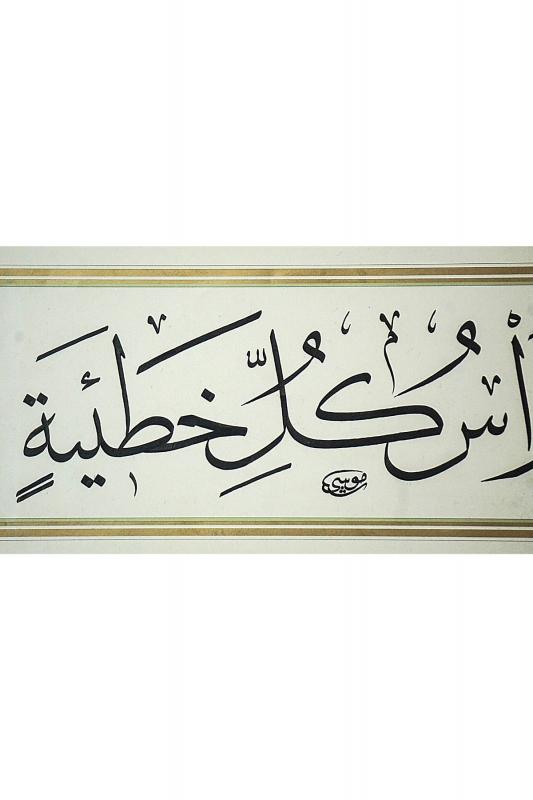 رَأْسُ كُلِّ خَطِيئَةٍ
موسى